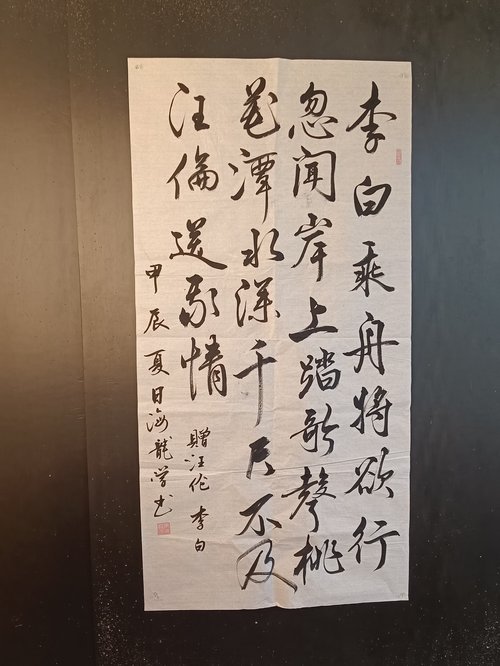 李白乘舟将欲行
忽闻岸上踏歌聲桃
花潭水深千尺不及
汪倫送我情
赠汪伦 李白
甲辰夏日海龍学书